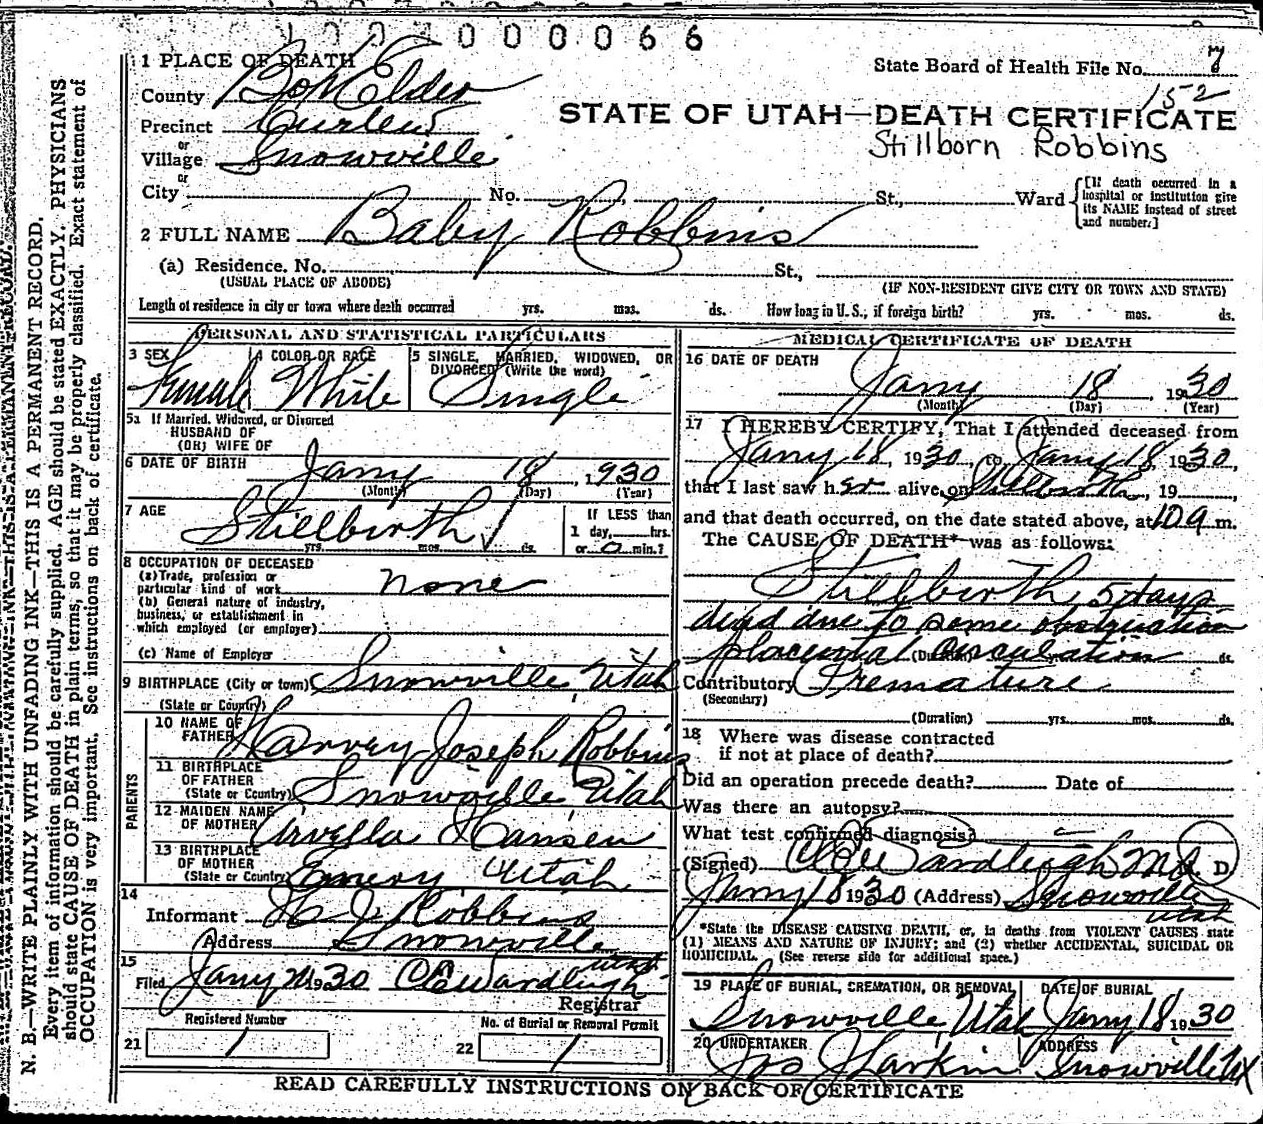 1 0 0 1 0 0 0 0 6 6
1 PLACE OF DEATH
State Board of Health File No. 7
152
County Box Elder
STATE OF UTAH—DEATH CERTIFICATE
Precinct Curlew
Stillborn Robbins
or
Village Snowville
or
City No. St., Ward [If death occurred in a hospital or institution give its NAME instead of street and number.]
2 FULL NAME Baby Robbins
(a) Residence. No. St.,
(USUAL PLACE OF ABODE) (IF NON-RESIDENT GIVE CITY OR TOWN AND STATE)
Length of residence in city or town where death occurred yrs. mos. ds. How long in U. S.; if foreign birth? yrs. mos. ds.
PERSONAL AND STATISTICAL PARTICULARS
3 SEX 4 COLOR OR RACE 5 SINGLE, MARRIED, WIDOWED, OR
DIVORCED (Write the word)
Female White Single
5a If Married, Widowed, or Divorced
HUSBAND OF
(OR) WIFE OF
6 DATE OF BIRTH Jany 18, 1930
(Month) (Day) (Year)
7 AGE Stillbirth
yrs. mos. ds.
If LESS than
1 day, hrs.
or 0 min.?
8 OCCUPATION OF DECEASED
(a) Trade, profession or
particular kind of work none
(b) General nature of industry,
business, or establishment in
which employed (or employer)
(c) Name of Employer
9 BIRTHPLACE (City or town) Snowville, Utah
(State or Country)
PARENTS
10 NAME OF
FATHER Harvey Joseph Robbins
11 BIRTHPLACE
OF FATHER
(State or Country) Snowville Utah
12 MAIDEN NAME
OF MOTHER Hansen
13 BIRTHPLACE
OF MOTHER
(State or Country) Emery Utah
14
Informant H J Robbins
Address Snowville
Utah
15
Filed Jany 1930 C E Wardleigh
Registrar
Registered Number No. of Burial or Removal Permit
21 1 22 1
MEDICAL CERTIFICATE OF DEATH
16 DATE OF DEATH
Jany 18, 1930
(Month) (Day) (Year)
17 I HEREBY CERTIFY, That I attended deceased from
Jany 18, 1930, to Jany 18, 1930,
that I last saw h er alive on Stillbirth, 19
and that death occurred, on the date stated above, at 10 a m.
The CAUSE OF DEATH* was as follows:
Stillbirth, 5 days
dead due to some obstruction
placental circulation
(Duration) yrs. mos. ds.
Contributory Premature
(Secondary)
(Duration) yrs. mos. ds.
18 Where was disease contracted
if not at place of death?
Did an operation precede death? Date of
Was there an autopsy?
What test confirmed diagnosis?
(Signed) C E Wardleigh M D, M. D.
Jany 18 1930 (Address) Snowville
Utah
*State the DISEASE CAUSING DEATH, or, in deaths from VIOLENT CAUSES state
(1) MEANS AND NATURE OF INJURY; and (2) whether ACCIDENTAL, SUICIDAL OR
HOMICIDAL. (See reverse side for additional space.)
19 PLACE OF BURIAL, CREMATION, OR REMOVAL DATE OF BURIAL
Snowville Utah Jany 18 1930
20 UNDERTAKER ADDRESS
Jos Larkin Snowville Ut
READ CAREFULLY INSTRUCTIONS ON BACK OF CERTIFICATE
N. B.—WRITE PLAINLY WITH UNFADING INK—THIS IS A PERMANENT RECORD.
Every item of information should be carefully supplied. AGE should be stated EXACTLY. PHYSICIANS
should state CAUSE OF DEATH in plain terms, so that it may be properly classified. Exact statement of
OCCUPATION is very important. See instructions on back of certificate.